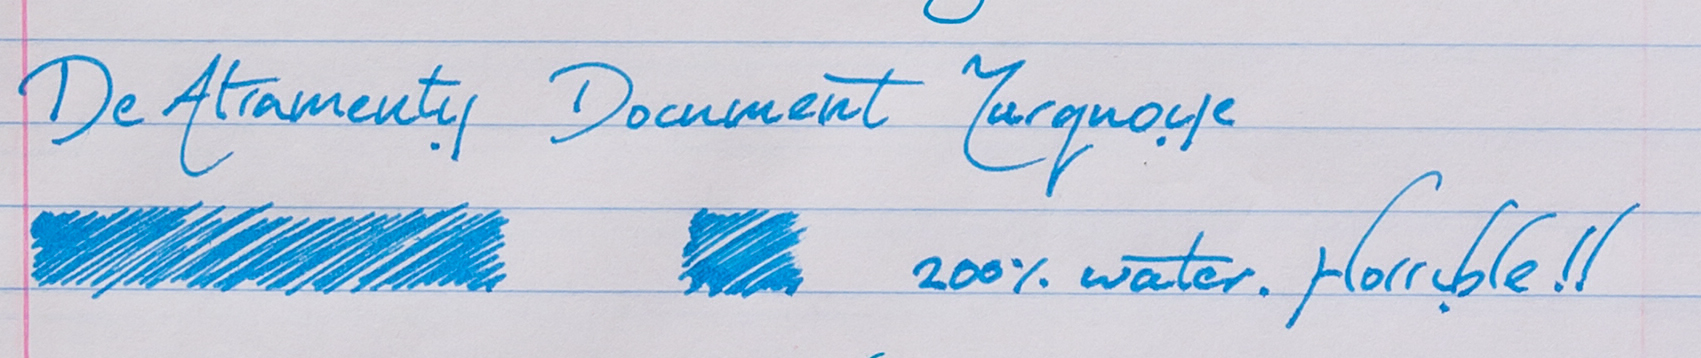 De Atramentis Document Turquoise
200% water. Horrible!!